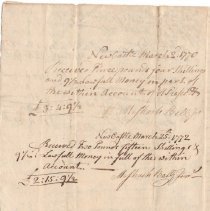 New Castle March 2. 1770
Received three pounds four Shillings
and 9½ Lawfull Money in part of
the within Account
£ 3:4:9½
New Castle March 25. 1772
Received two Pound fifteen Shillings &
9½ Lawfull Money in full of the within
Account.
£ 2:15:9½